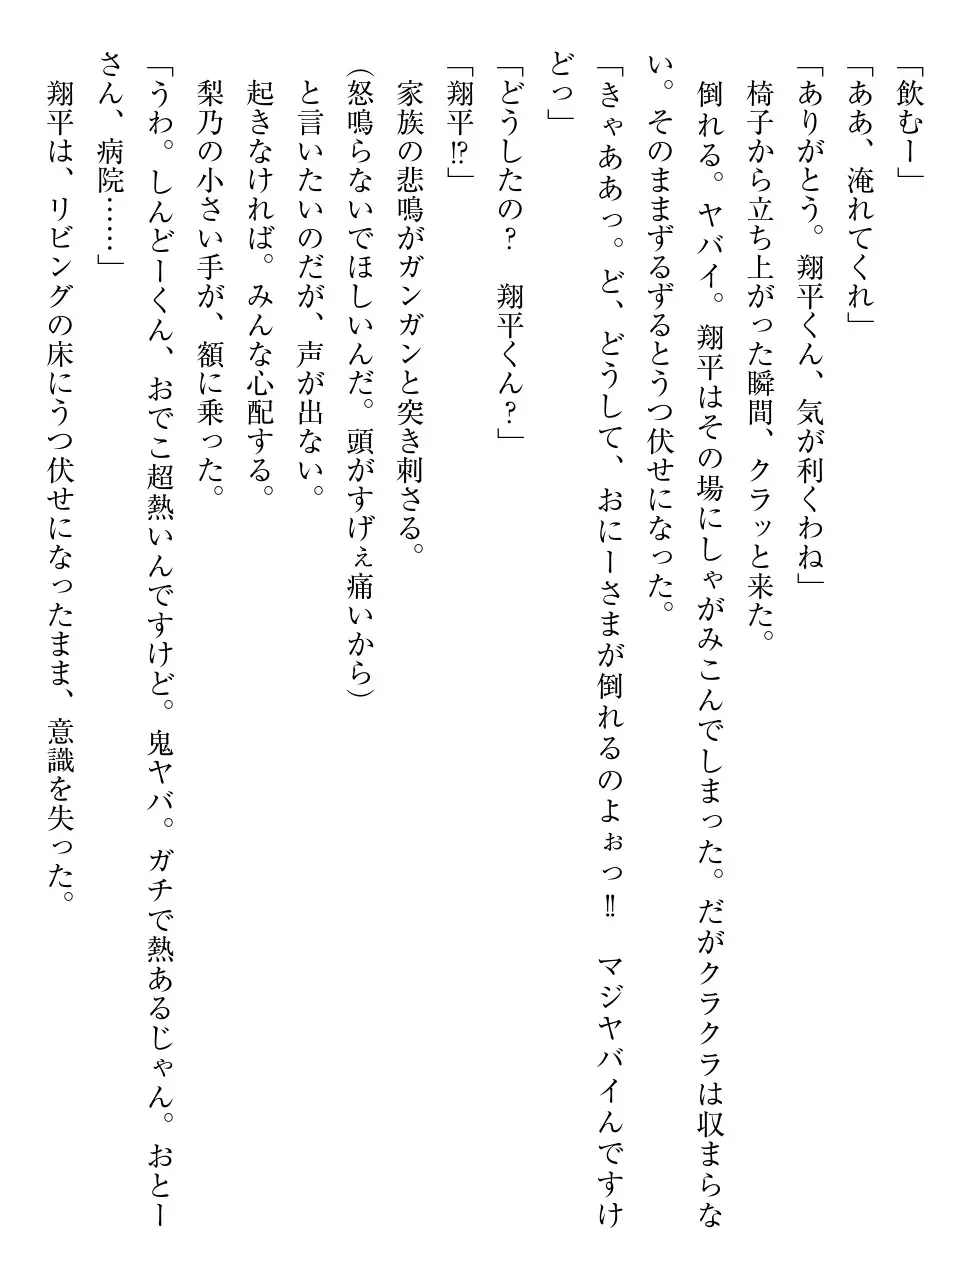 「飲むー」
「ああ、淹れてくれ」
「ありがとう。翔平くん、気が利くわね」
　椅子から立ち上がった瞬間、クラッと来た。
　倒れる。ヤバイ。翔平はその場にしゃがみこんでしまった。だがクラクラは収まらな
い。そのままずるずるとうつ伏せになった。
「きゃああっ。ど、どうして、おにーさまが倒れるのよぉっ‼　マジヤバイんですけ
どっ」
「どうしたの？　翔平くん？」
「翔平⁉」
　家族の悲鳴がガンガンと突き刺さる。
（怒鳴らないでほしいんだ。頭がすげぇ痛いから）
　と言いたいのだが、声が出ない。
　起きなければ。みんな心配する。
　梨乃の小さい手が、額に乗った。
「うわ。しんどーくん、おでこ超熱いんですけど。鬼ヤバ。ガチで熱あるじゃん。おとー
さん、病院……」
　翔平は、リビングの床にうつ伏せになったまま、意識を失った。